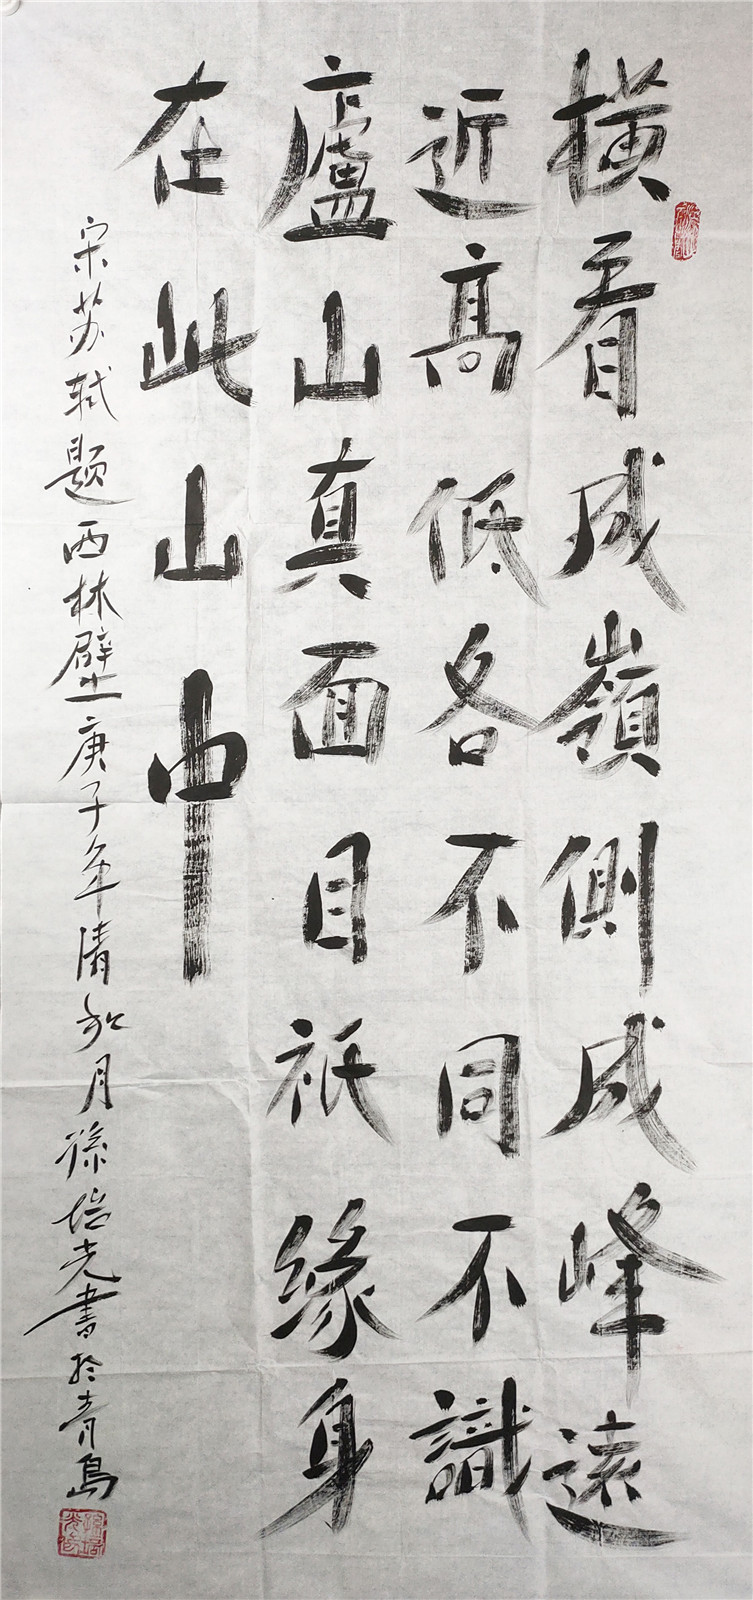 橫看成嶺側成峰遠
近高低各不同不識
廬山真面目祇緣身
在此山中
宋苏轼題西林壁庚子年清和月孫培光書於青島